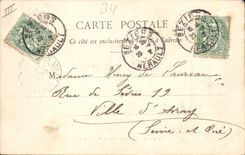 III
34
CARTE POSTALE
Ce côté est exclusivement
BEZIERS
HERAULT
BEZIERS
HERAULT
Madame Henry de
Rue de Sèvres 12
Ville d'Avray
Seine et Oise